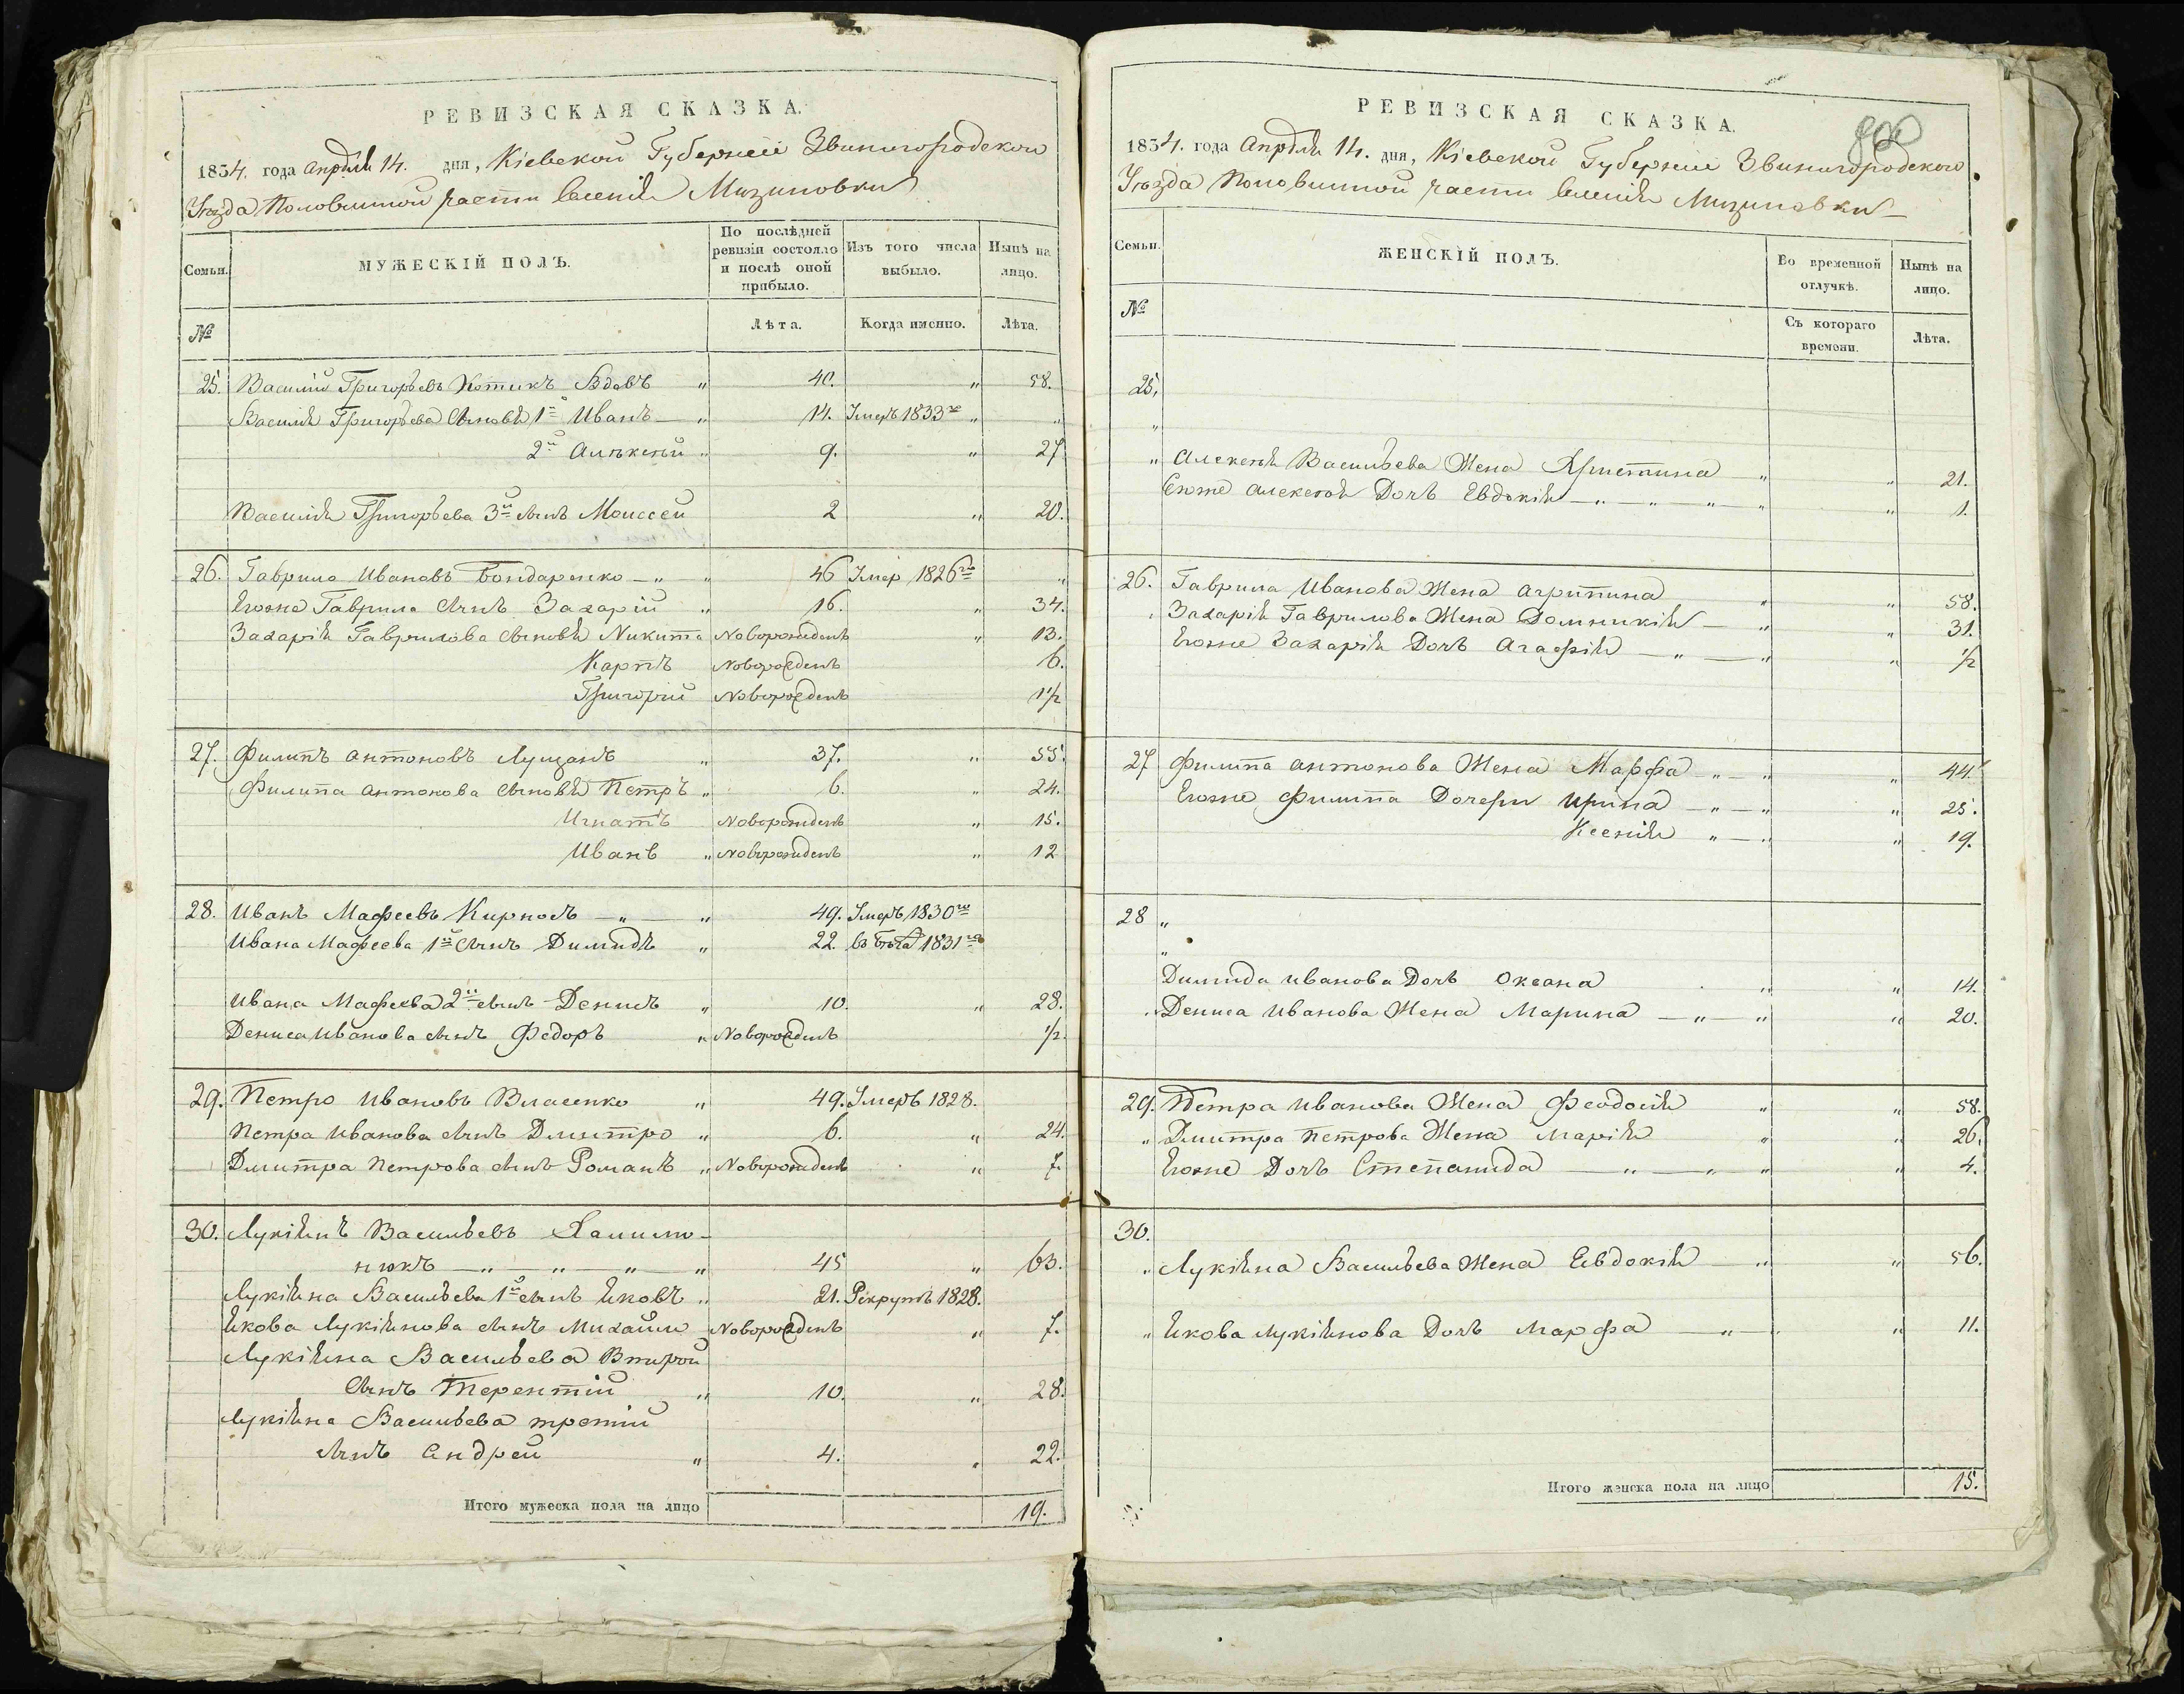 РЕВИЗСКАЯ СКАЗКА.
1834. года Апрѣля 14. дня, Кіевской Губерніи Звинигородского
Уѣзда Половинной части Селенія Мизиновки
Семьи.
МУЖЕСКІЙ ПОЛЪ.
По послѣдней ревизіи состояло и послѣ оной прибыло.
Изъ того числа выбыло.
Нынѣ на лицо.
№
Лѣта.
Когда именно.
Лѣта.
25. Василій Григорьевъ Котикъ Вдовъ " 40. " 58.
Василія Григорьева Сыновья 1й Иванъ — " 14. Умеръ 1833го "
2й Алѣксѣй " 9. " 27
Василія Григорьева 3й сынъ Моиссей 2 " 20.
26. Гаврило Ивановъ Бондаренко — " — " 46 Умер 1826го "
Егоже Гаврила сынъ Захарій " 16. " 34.
Захарія Гаврилова сыновья Никита Новорожденъ " 13.
Карпъ Новорожденъ 6.
Григорій Новорожденъ 1 1/2
27. Филипъ Антоновъ Лущанъ " 37. " 55.
Филипа Антонова сыновья Петръ " 6. " 24.
Игнатъ Новорожденъ " 15.
Иванъ " Новорожденъ " 12
28. Иванъ Мафеевъ Кирносъ — " — " 49. Умеръ 1830го
Ивана Мафеева 1й сынъ Димидъ " 22 въ бѣга 1831го
Ивана Мафеева 2й сынъ Денисъ " 10. " 28.
Дениса Иванова сынъ Федоръ " Новорожденъ 1/2.
29. Петро Ивановъ Власенко " 49. Умеръ 1828.
Петра Иванова сынъ Дмитро " 6. " 24.
Дмитра Петрова сынъ Романъ " Новорожденъ " 7.
30. Лукіянъ Васильевъ
нюкъ — " — " — " — " 45 " 63.
Лукіяна Васильева 1й сынъ Яковъ " 21. Рекрутъ 1828.
Якова Лукіянова сынъ Михайло Новорожденъ " 7.
Лукіяна Васильева Второй
Сынъ Терентій " 10. " 28.
Лукіяна Васильева третій
сынъ Андрей " 4. " 22.
Итого мужеска пола на лицо 19.
РЕВИЗСКАЯ СКАЗКА.
1834. года Апрѣля 14. дня, Кіевской Губерніи Звинигородского
Уѣзда Половинной части Селенія Мизиновки —
Семьи.
ЖЕНСКІЙ ПОЛЪ.
Во временной отлучкѣ.
Нынѣ на лицо.
№
Съ котораго времени.
Лѣта.
25.
"
" Алексѣя Васильева Жена Христина " " 21.
Егоже Алексѣя Дочь Евдокія — " — " — " — " " 1.
26. Гаврила Иванова Жена Агрипина " " 58.
" Захарія Гаврилова Жена Домникія — " " 31.
Егоже Захарія Дочь Агафія — " — " " 1/2
27 Филипа Антонова Жена Марфа — " — " " 44.
Егоже Филипа Дочери Ирина — " — " " 25.
Ксенія " — " " 19.
28 "
"
Димида Иванова Дочь Оксана " " 14.
" Дениса Иванова Жена Марина — " — " " 20.
29. Петра Иванова Жена Феодосія " " 58.
" Дмитра Петрова Жена Марія " " 26.
Егоже Дочь Степанида — " — " " " 4.
30.
" Лукіяна Васильева Жена Евдокія — " " 56.
" Якова Лукіянова Дочь Марфа — " — " " 11.
Итого женска пола на лицо 15.